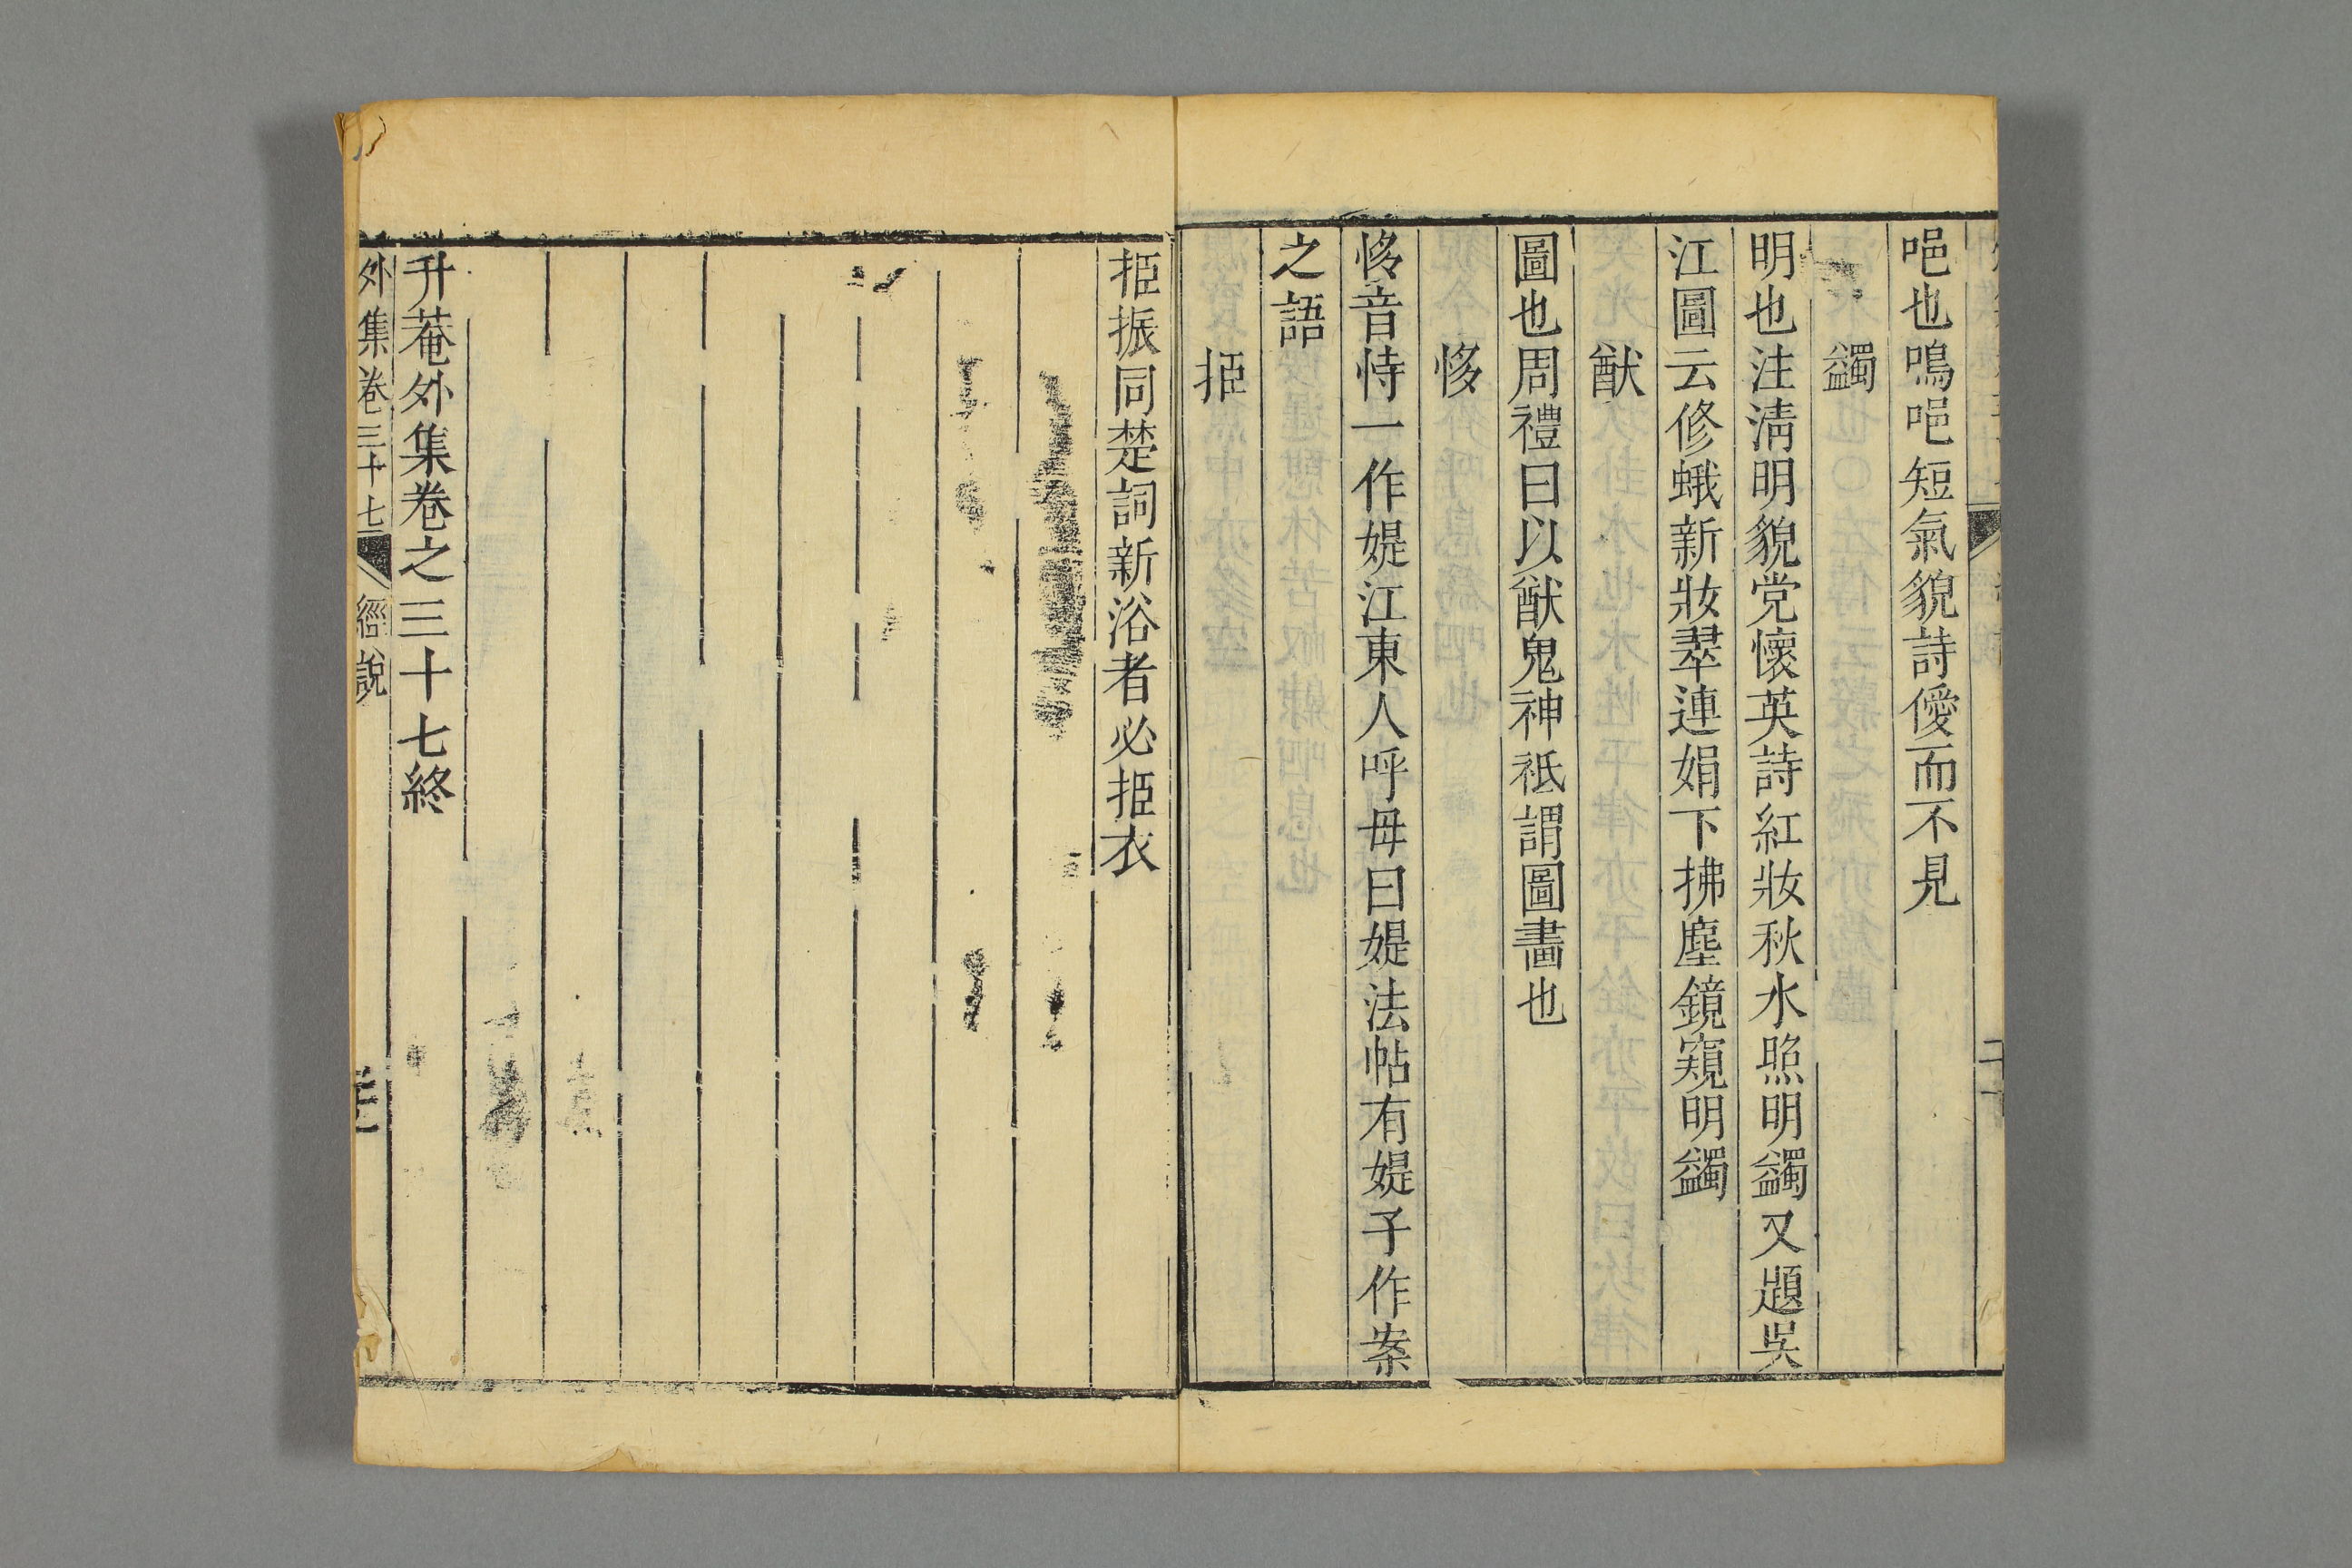 唈也嗚唈短氣貌詩僾而不見
蠲
明也注清明貌党懷英詩紅妝秋水照明蠲又題吳
江圖云修蛾新妝翠連娟下拂塵鏡窺明蠲
猷
圖也周禮曰以猷鬼神祇謂圖畫也
恀
恀音恃一作媞江東人呼母曰媞法帖有媞子作案
之語
挋
挋振同楚詞新浴者必挋衣
升菴外集卷之三十七終
外集卷三十七 經說